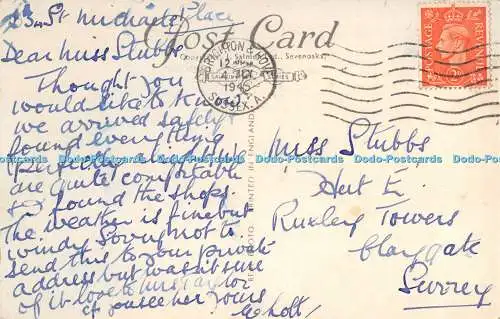 23 St Michaels Place
Post Card
Dear Miss Stubbs
Thought you
would like to know
we arrived safely &
found everything
perfectly
are quite comfortable
found the shops.
The weather is fine but
windy Sorry not to
send this to your private
address but wasn't sure
of it love to Miss Taylor
if you see her yours
E Holt
BRIGHTON & HOVE
12
4
1945
SUSSEX. A.
POSTAGE
REVENUE
PRINTED IN ENGLAND
Miss Stubbs
Hut E.
Ruxley Towers
Claygate
Surrey
Dodo-Postcards Dodo-Postcards Dodo-Postcards Dodo-Postcards Dodo-Postcards